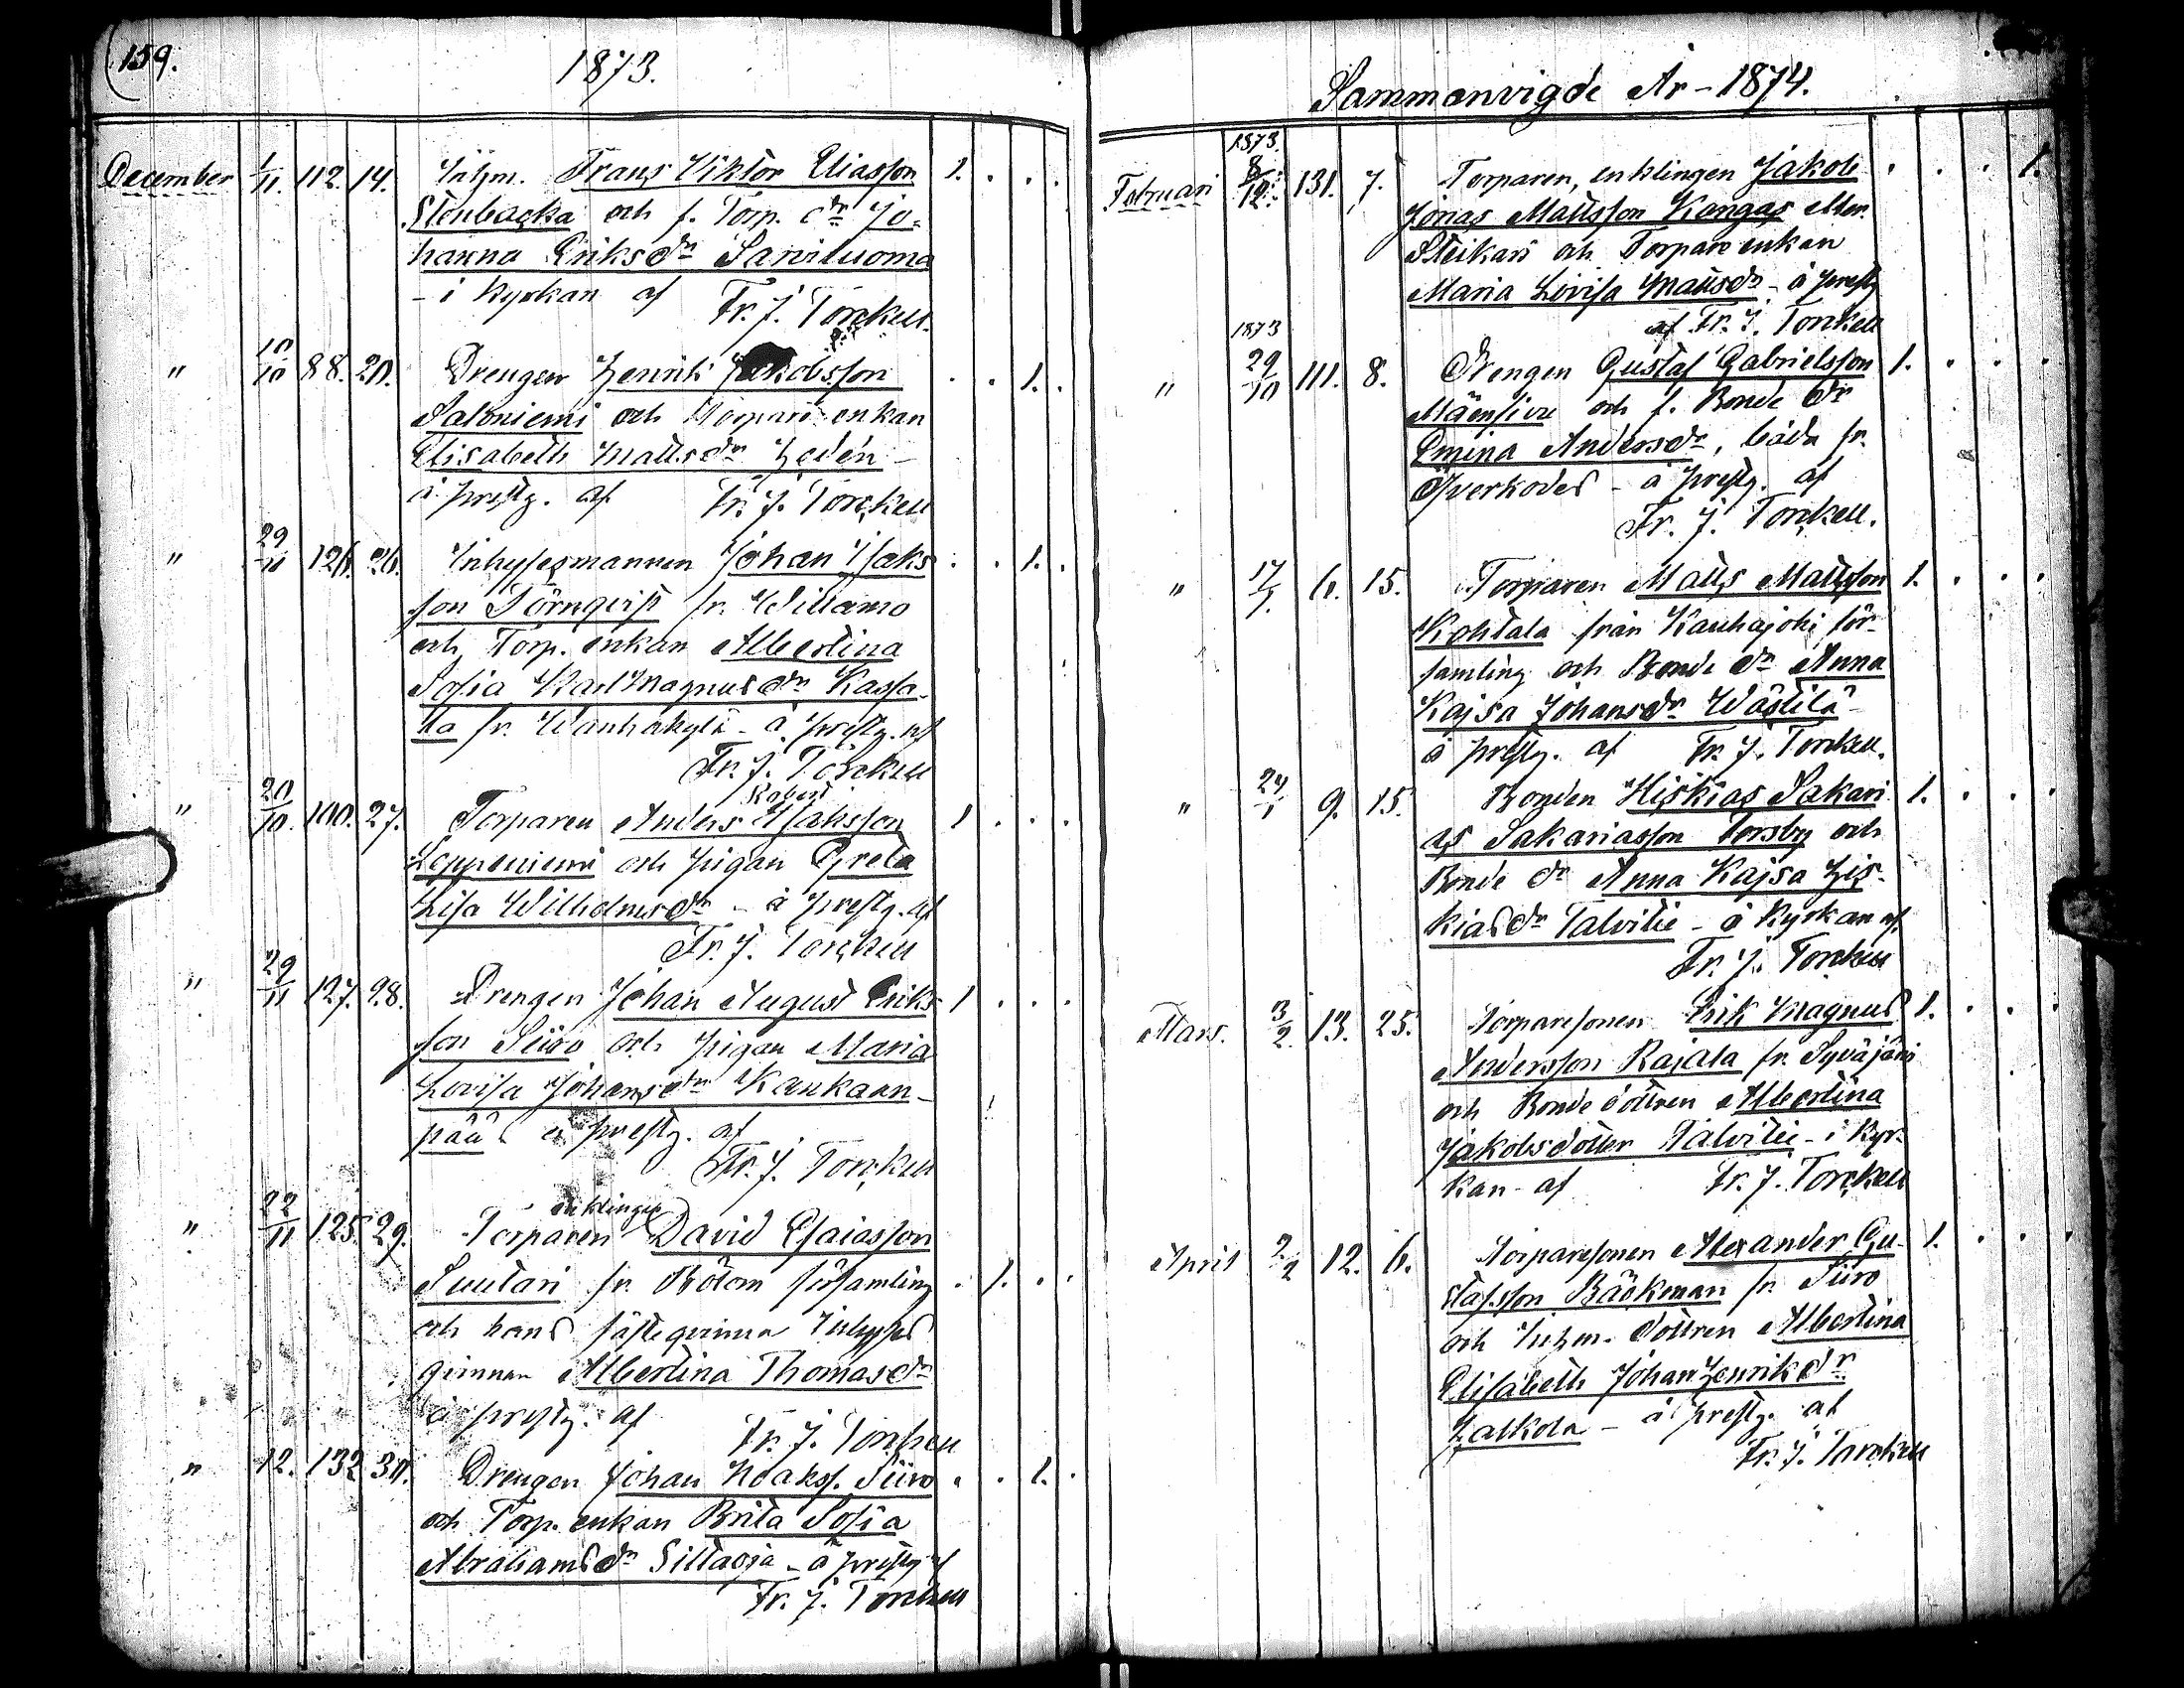 159.
1873.
December 1/11. 112. 14. Inhm. Frans Viktor Eliasson 1. . . .
Stenbacka och f. Torp. dr Jo-
hanna Eriksdr Sarviluoma
- i kyrkan af Fr. J. Torckell.
" 10/10 88. 20. Drengen Henrik Jakobsson . . 1. .
Saloniemi och Torpare enkan
Elisabeth Mattsdr Hedén -
å prestg. af Fr. J. Torckell
" 29/11 126. 26. Inhysesmannen Johan Isaks . . 1. .
son Törnqvist fr. Villamo
och Torp. enkan Albertina
Sofia Karl Magnusdr Kassa-
la fr. Wanhakylä - å prestg. af
Fr. J. Torckell
" 20/10. 100. 27. Torparen Anders Robert Isaksson 1 . . .
Leppeniemi och pigan Greta
Lisa Wilhelmsdr - å prestg. af
Fr. J. Torckell
" 29/11 127. 28. Drengen Johan August Eriks 1 . . .
son Siiro och pigan Maria
Lovisa Johansdr Kankaan-
pää å prestg. af
Fr. J. Torckell
" 22/11 125. 29. Torparen enklingen David Esaiasson
Suutari fr. Bötom församling . 1. . .
och hans fästeqvinna Inhyses
qvinnan Albertina Thomasdr
å prestg. af
Fr. J. Torckell
" 12. 132 30. Drengen Johan Noakss. Siiro . . 1. .
och Torp. enkan Brita Sofia
Abrahamsdr Siltaoja - å prestg af
Fr. J. Torckell
Sammanvigde År - 1874.
Februari 1873. 8/12. 131. 7. Torparen, enklingen Jakob . . . 1.
Jonas Mattsson Kangas
och Torpare enkan
Maria Lovisa Mattsdr - å prestg
af Fr. J. Torckell
" 1873 29/10 111. 8. Drengen Gustaf Gabrielsson 1. . . .
Mäensivu och f. Bonde dr
Emina Andersdr, båda fr.
- å prestg. af
Fr. J. Torckell.
" 17/1. 6. 15. Torparen Matts Mattsson 1. . . .
Kohtala från Kauhajoki för-
samling och Bonde dr Anna
Kajsa Johansdr Wästilä -
å prestg. af Fr. J. Torckell.
" 24/1 9. 15. Bonden Hiskias Sakari 1. . . .
as Sakariasson Forsby och
Bonde dr Anna Kajsa His-
kiasdr Talvitie - å kyrkan af.
Fr. J. Torckell
Mars. 3/2. 13. 25. Torparesonen Erik Magnus 1. . . .
Andersson Rajala fr. Syväjärvi
och Bonde dottren Albertina
Jakobsdotter Talvitie - i kyr-
kan - af Fr. J. Torckell
April 2/2 12. 6. Torparesonen Alexander Gu- 1. . . .
stafsson Bäckman fr. Siiro
och Inhm. dottren Albertina
Elisabeth Johan Henrikdr
Halkola - å prestg. af
Fr. J. Torckell